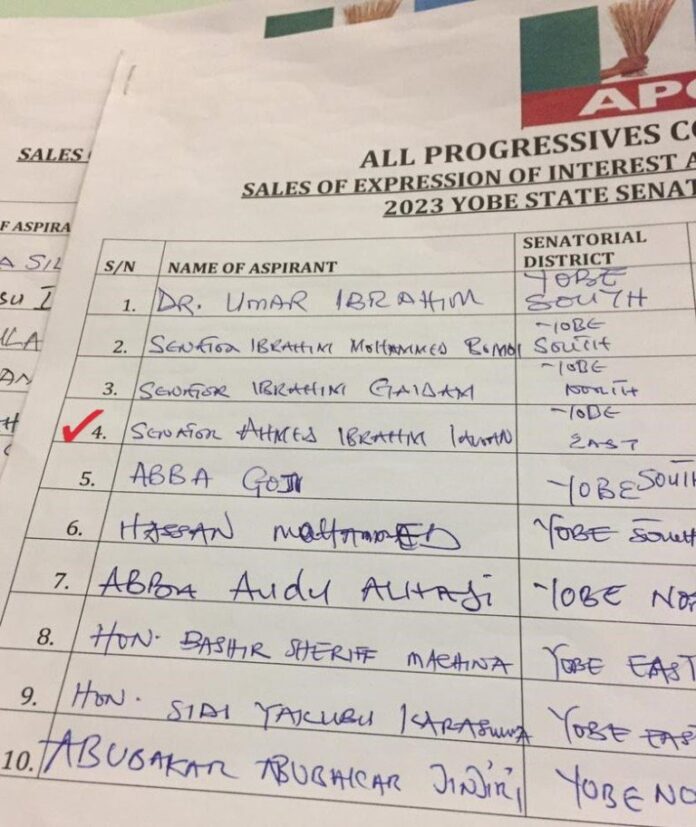 APC
ALL PROGRESSIVES CO
SALES OF EXPRESSION OF INTEREST A
2023 YOBE STATE SENAT
SALES
F ASPIRA
S/N NAME OF ASPIRANT SENATORIAL DISTRICT
1. DR. UMAR IBRAHIM YOBE SOUTH
2. SENATOR IBRAHIM MOHAMMED BOMOI YOBE SOUTH
3. SENATOR IBRAHIM GAIDAM YOBE NORTH
4. SENATOR AHMED IBRAHIM LAWAN YOBE EAST
5. ABBA GOJI YOBE SOUTH
6. HASSAN MOHAMMED YOBE South
7. ABBA AUDU ALHAJI YOBE NO
8. HON. BASHIR SHERIFF MACHINA YOBE EAST
9. HON. SIDI YAKUBU KARASUWA YOBE EAS
10. ABUBAKAR ABUBAKAR JINJIRI YOBE NO